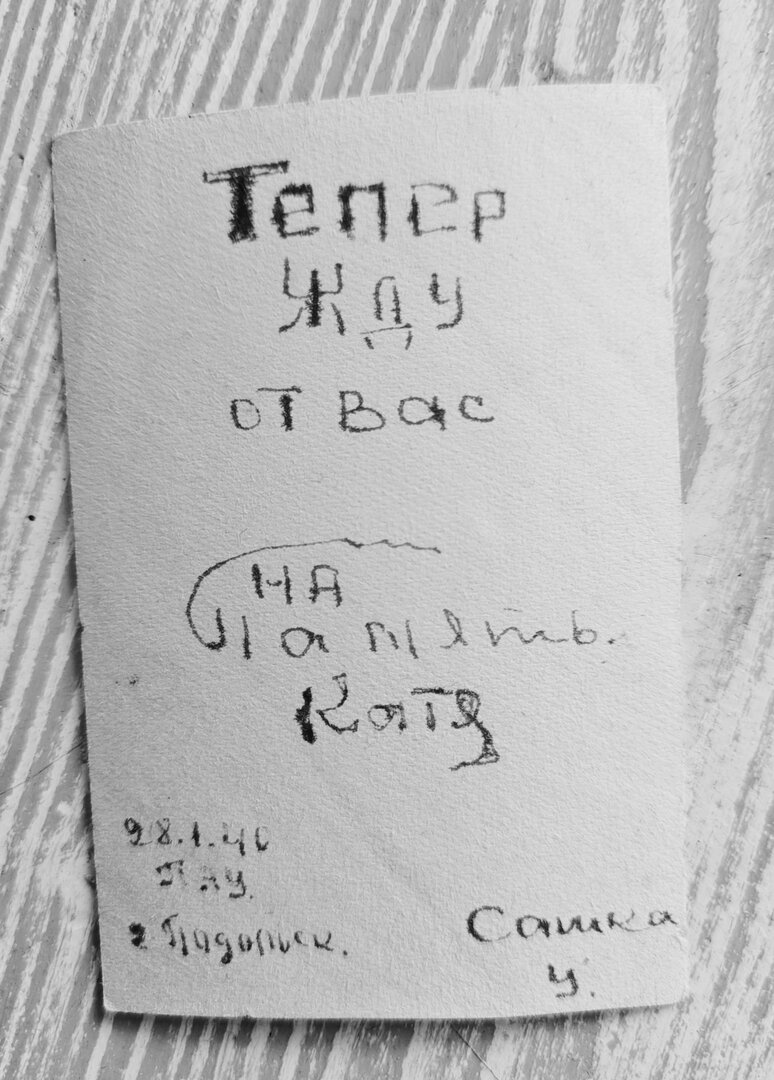 Тепер
Жду
от Вас
НА
Память.
Катя
28.1.40
ПАУ.
г Падольск.
Сашка
У.